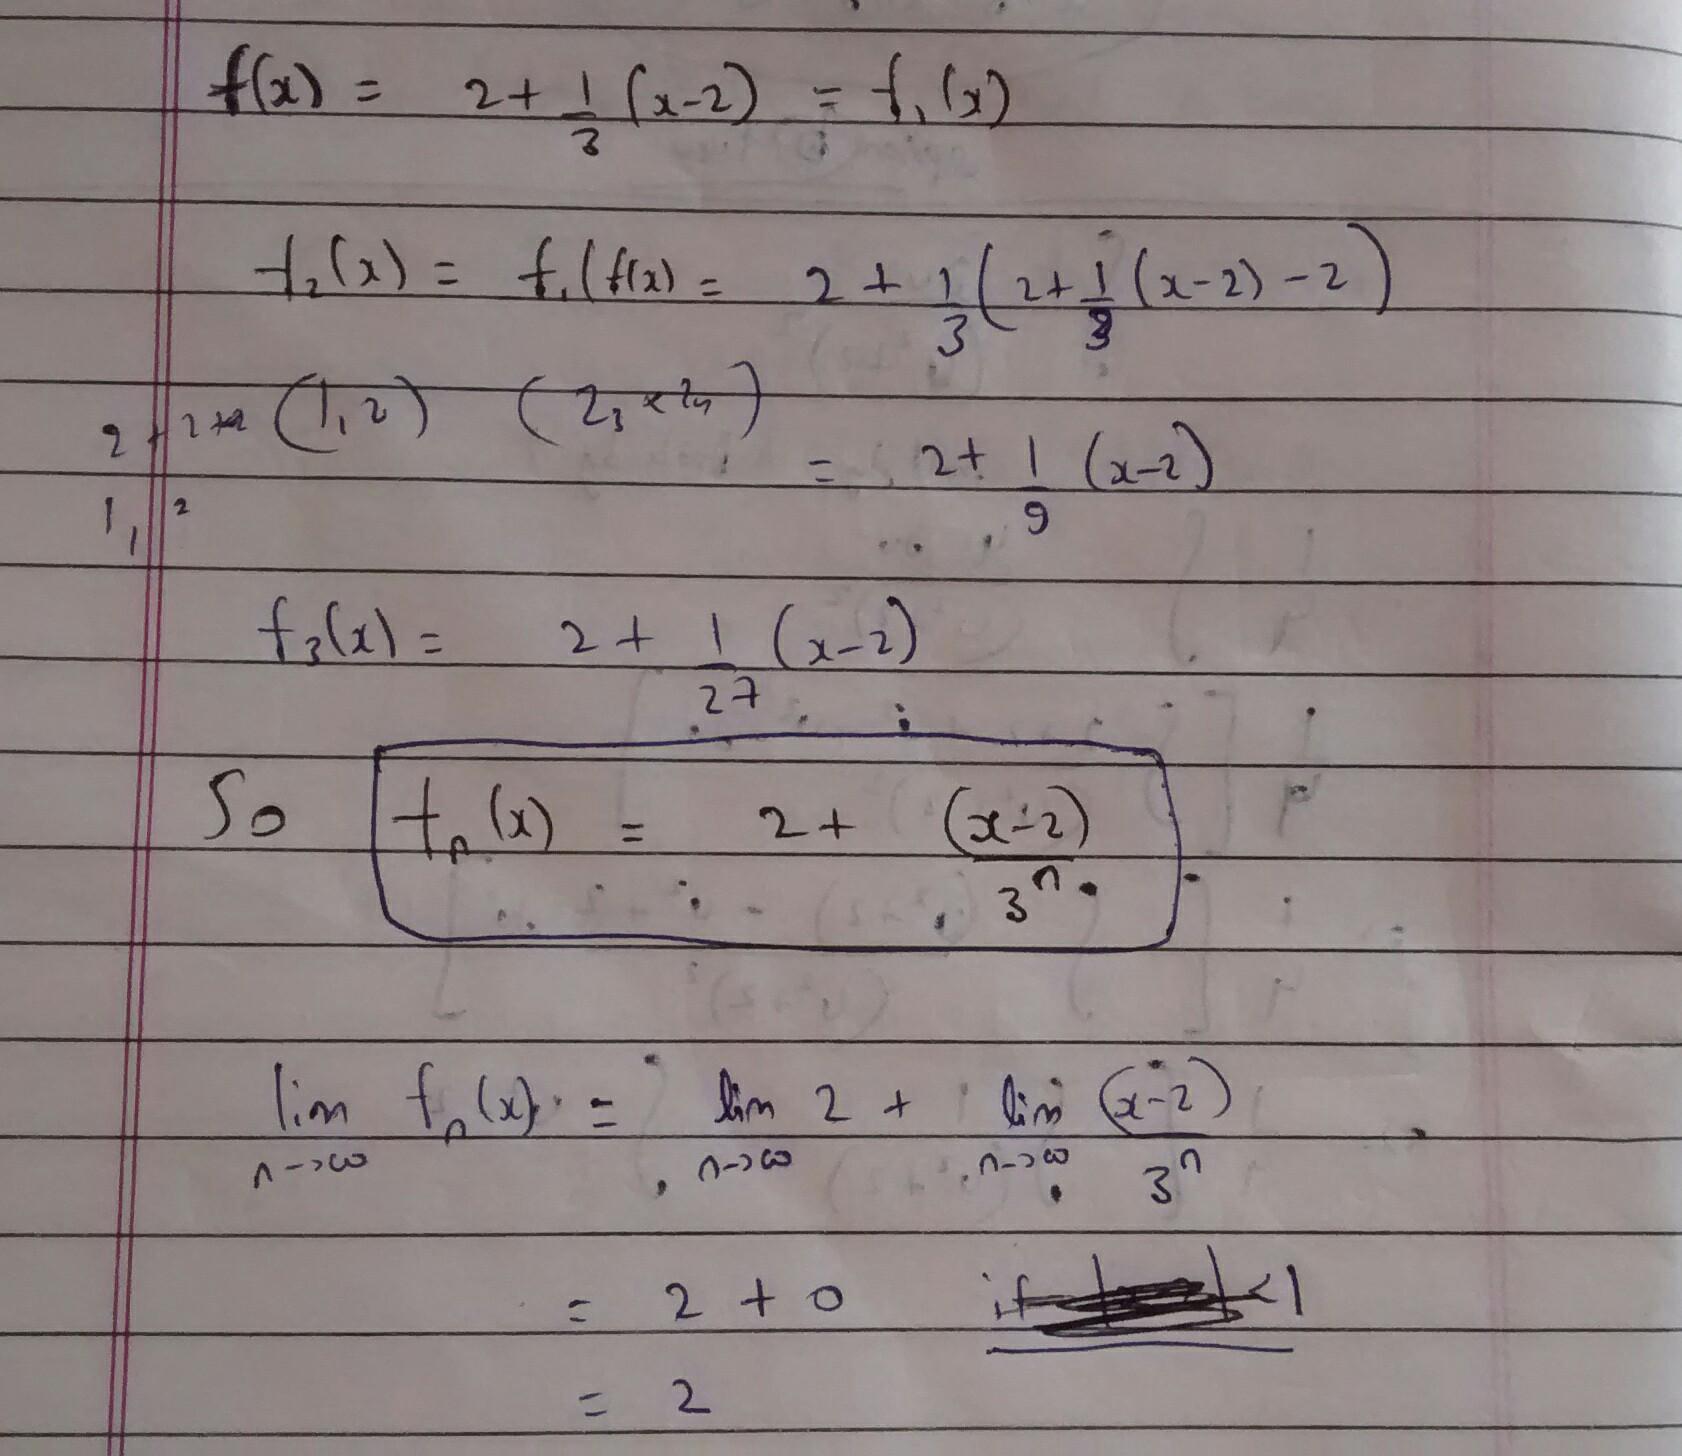 f(x) = 2 + 1/3 (x-2) = f₁(x)
f₂(x) = f₁(f(x) = 2 + 1/3 (2 + 1/3 (x-2) - 2)
(1, 2)
= 2 + 1/9 (x-2)
1, 2
f₃(x) = 2 + 1/27 (x-2)
So fₙ(x) = 2 + (x-2)/3ⁿ.
lim n→∞ fₙ(x) = lim n→∞ 2 + lim n→∞ (x-2)/3ⁿ
= 2 + 0
= 2